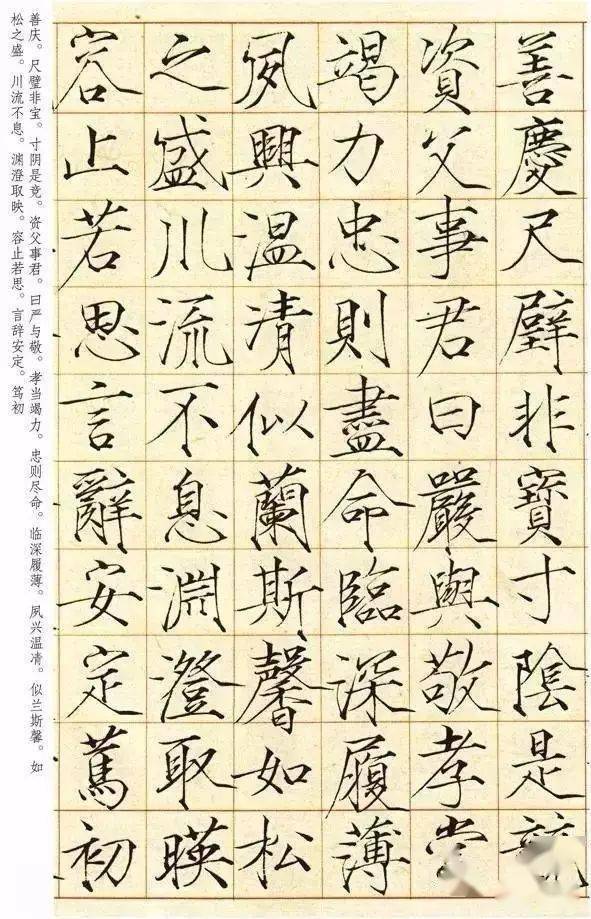 善慶尺璧非寶寸陰是競
資父事君曰嚴與敬孝當
竭力忠則盡命臨深履薄
夙興温凊似蘭斯馨如松
之盛川流不息淵澄取暎
容止若思言辭安定篤初
善庆。尺璧非宝。寸阴是竞。资父事君。曰严与敬。孝当竭力。忠则尽命。临深履薄。夙兴温凊。似兰斯馨。如
松之盛。川流不息。渊澄取映。容止若思。言辞安定。笃初